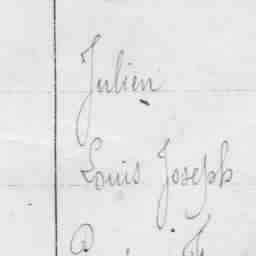 Julien
Louis Joseph